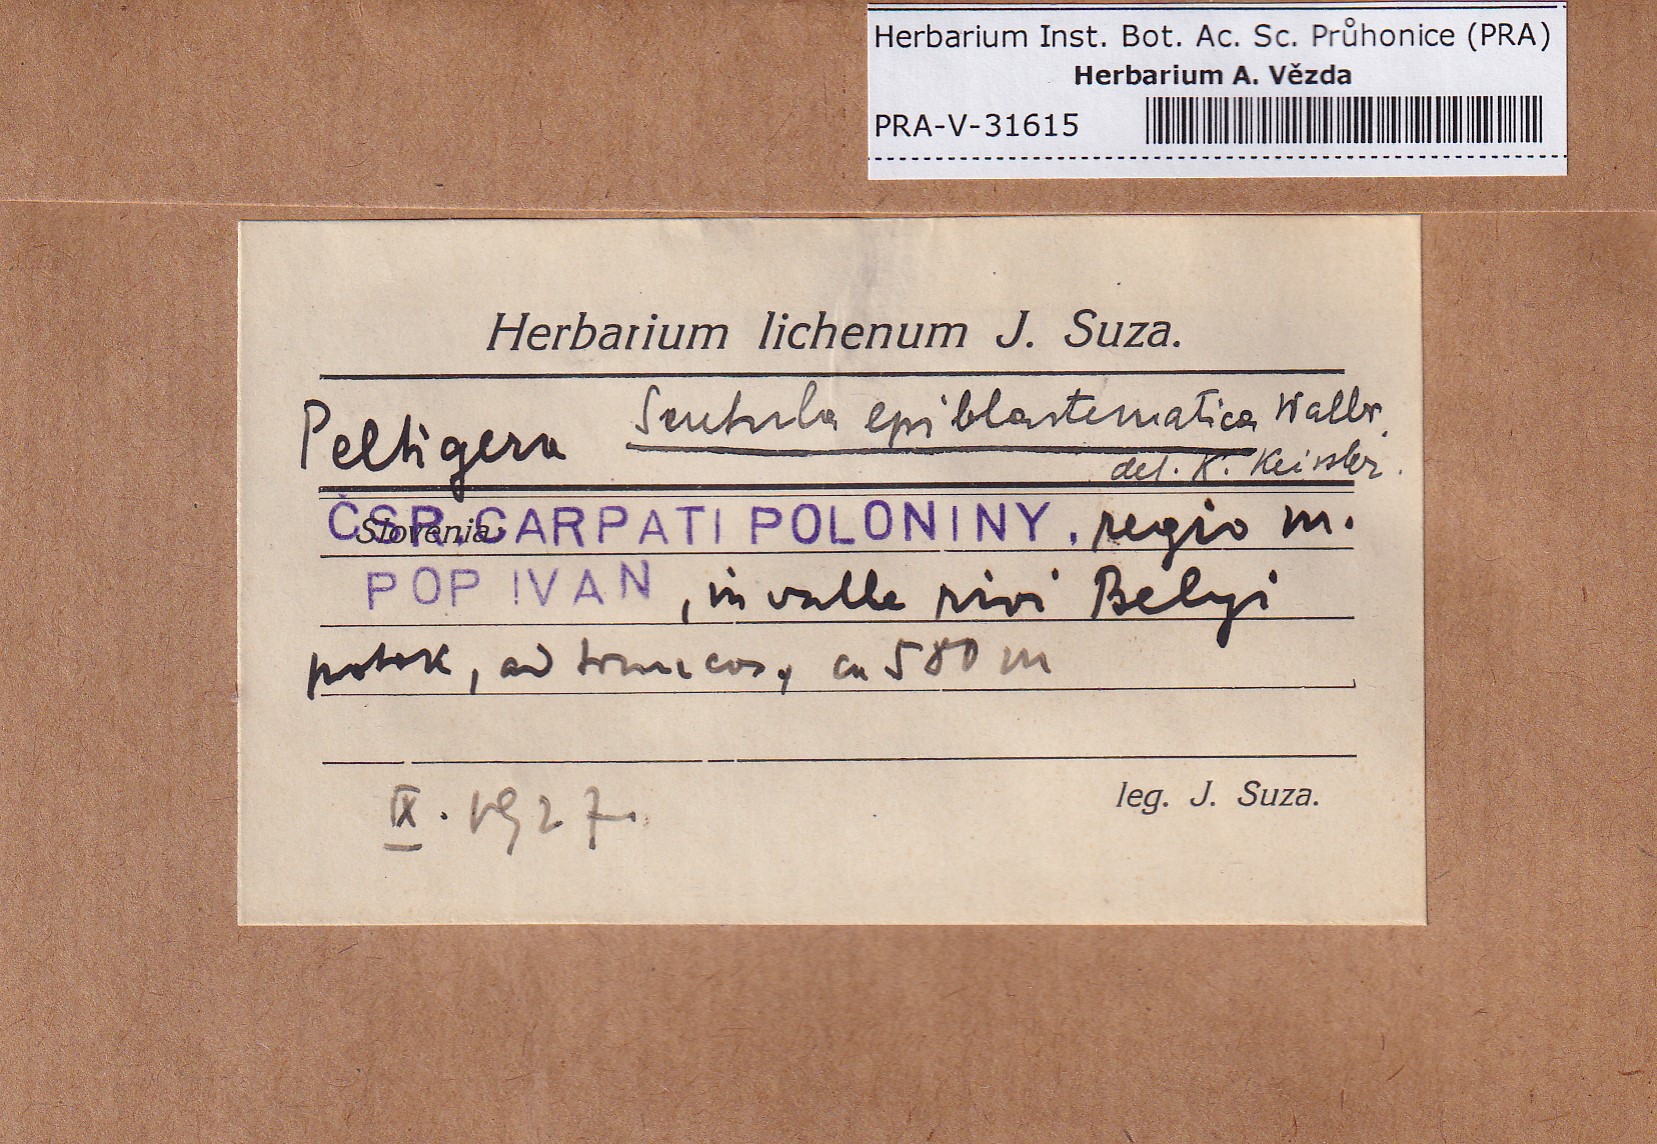 Herbarium Inst. Bot. Ac. Sc. Průhonice (PRA)
Herbarium A. Vězda
PRA-V-31615
Herbarium lichenum J. Suza.
Peltigera Scutula epiblastematica Wallr.
det. K. Keissler.
Slovenia,
ČSR. CARPATI POLONINY, regio m.
POP IVAN, in valle rivi Belyi
potok, ad truncos, ca 580 m
IX. 1927.
leg. J. Suza.